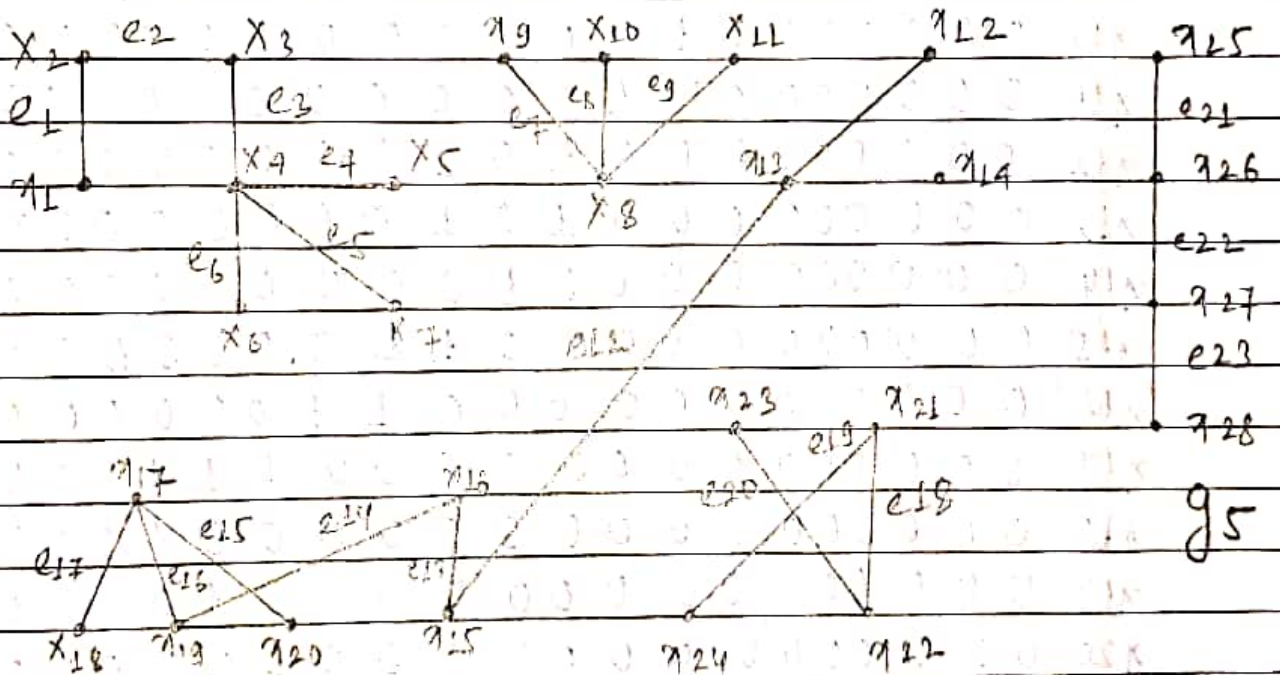 x2 e2 x3 x9 x10 x11 x12 x25
e1 e3 e7 e8 e9 e21
x1 x4 e4 x5 x8 x13 x14 x26
e6 e5 e22
x6 x7 x27
e12 e23
x23 x21 x28
x17 x16 e19
e15 e14 e20 e18 g5
e17 e16 e13
x18 x19 x20 x15 x24 x22